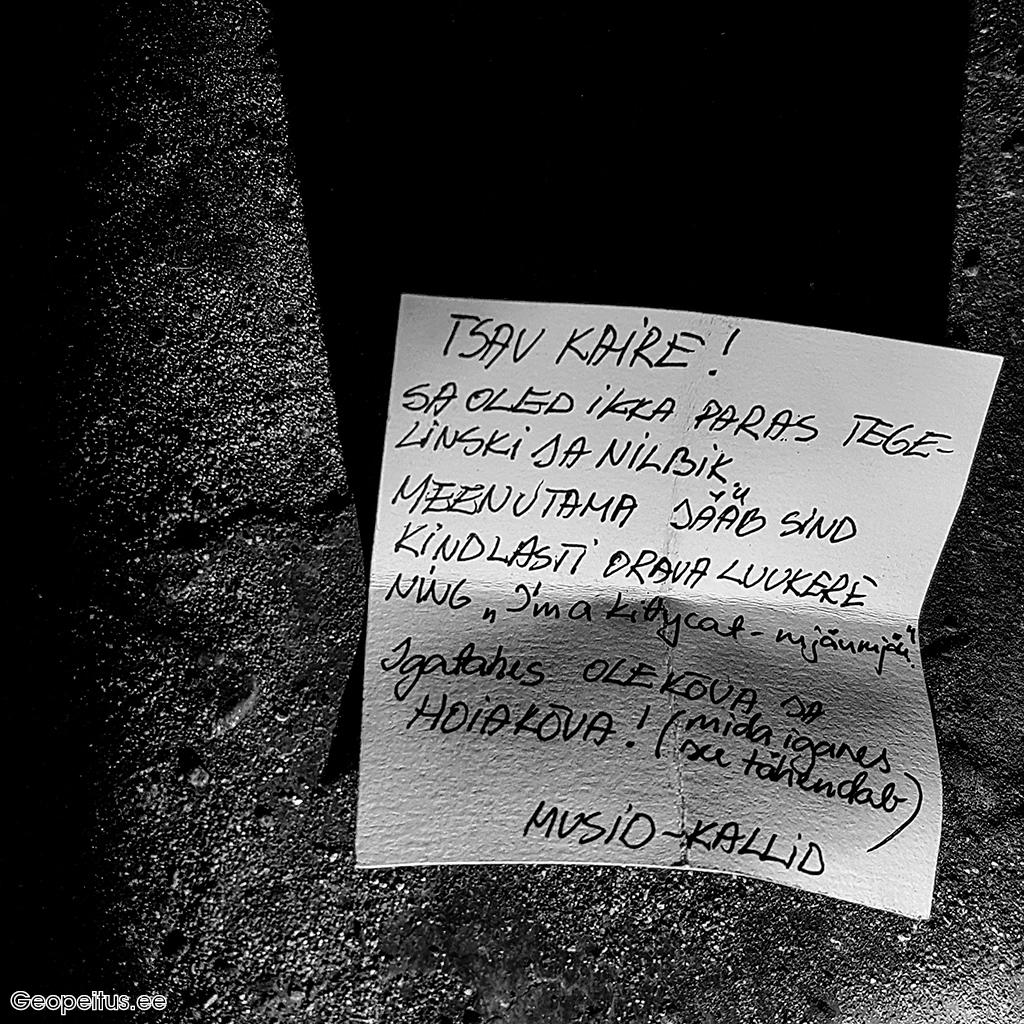 TSAV KAIRE!
SA OLED IKKA PARAS TEGE-
LINSKI JA NILBIK
MEENUTAMA JÄÄB SIND
KINDLASTI ORAVA LUUKERE
NING „I'm a kittycat - mjäumjäu".
Igatahes OLE KÕVA JA
HOIA KÕVA! (mida iganes
see tähendab)
MUSID-KALLID
Geopeitus.ee